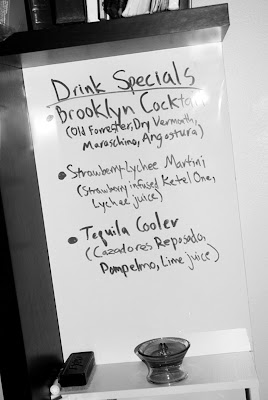 Drink Specials
• Brooklyn Cocktail
(Old Forrester, Dry Vermouth,
Maraschino, Angostura)
• Strawberry-Lychee Martini
(Strawberry infused Ketel One,
Lychee juice)
• Tequila Cooler
(Cazadores Reposado,
Pompelmo, Lime juice)